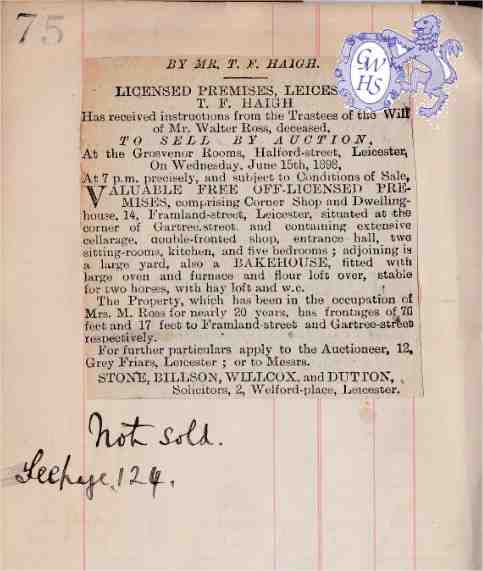 75
BY MR. T. F. HAIGH.
LICENSED PREMISES, LEICES
T. F. HAIGH
Has received instructions from the Trustees of the Will
of Mr. Walter Ross, deceased,
TO SELL BY AUCTION,
At the Grosvenor Rooms, Halford-street, Leicester,
On Wednesday, June 15th, 1898,
At 7 p.m. precisely, and subject to Conditions of Sale,
VALUABLE FREE OFF-LICENSED PRE-
MISES, comprising Corner Shop and Dwelling-
house, 14, Framland-street, Leicester, situated at the
corner of Gartree-street, and containing extensive
cellarage, double-fronted shop, entrance hall, two
sitting-rooms, kitchen, and five bedrooms ; adjoining is
a large yard, also a BAKEHOUSE, fitted with
large oven and furnace and flour loft over, stable
for two horses, with hay loft and w.c.
The Property, which has been in the occupation of
Mrs. M. Ross for nearly 20 years, has frontages of 70
feet and 17 feet to Framland-street and Gartree-street
respectively.
For further particulars apply to the Auctioneer, 12,
Grey Friars, Leicester ; or to Messrs.
STONE, BILLSON, WILLCOX, and DUTTON,
Solicitors, 2, Welford-place, Leicester.
Not sold.
See page 124.
GWHS